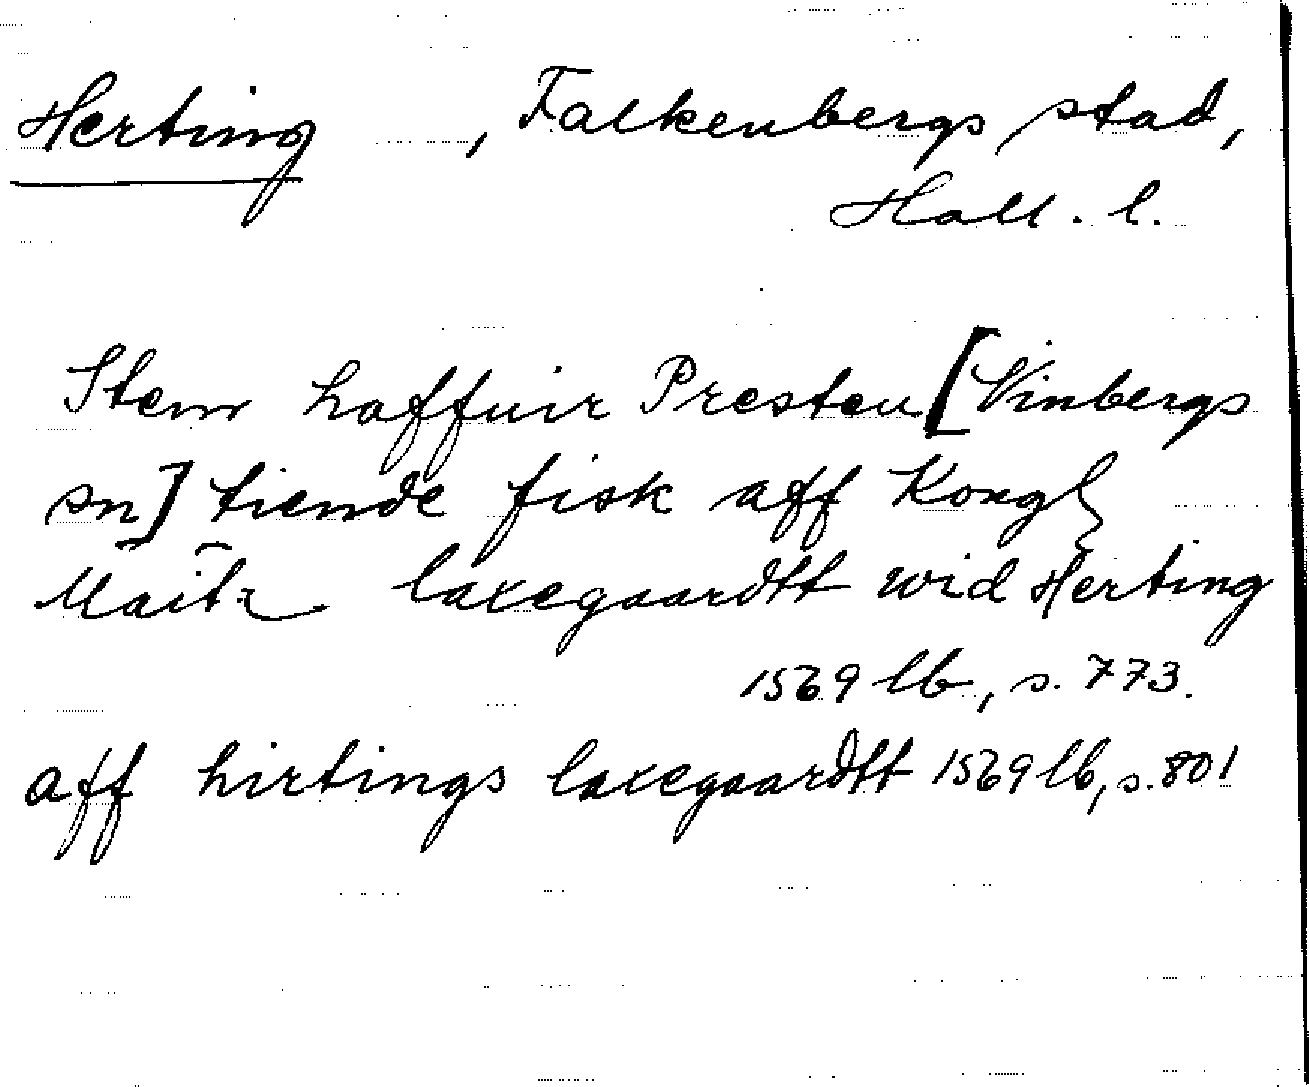 Herting, Falkenbergs stad,
Hall. l.
Item haffuir Presten [Vinbergs
sn] tiende fisk aff Kongl
Maitz laxegaardtt wid Herting
1569 lb, s. 773.
aff hirtings laxegaardtt 1569 lb, s. 801